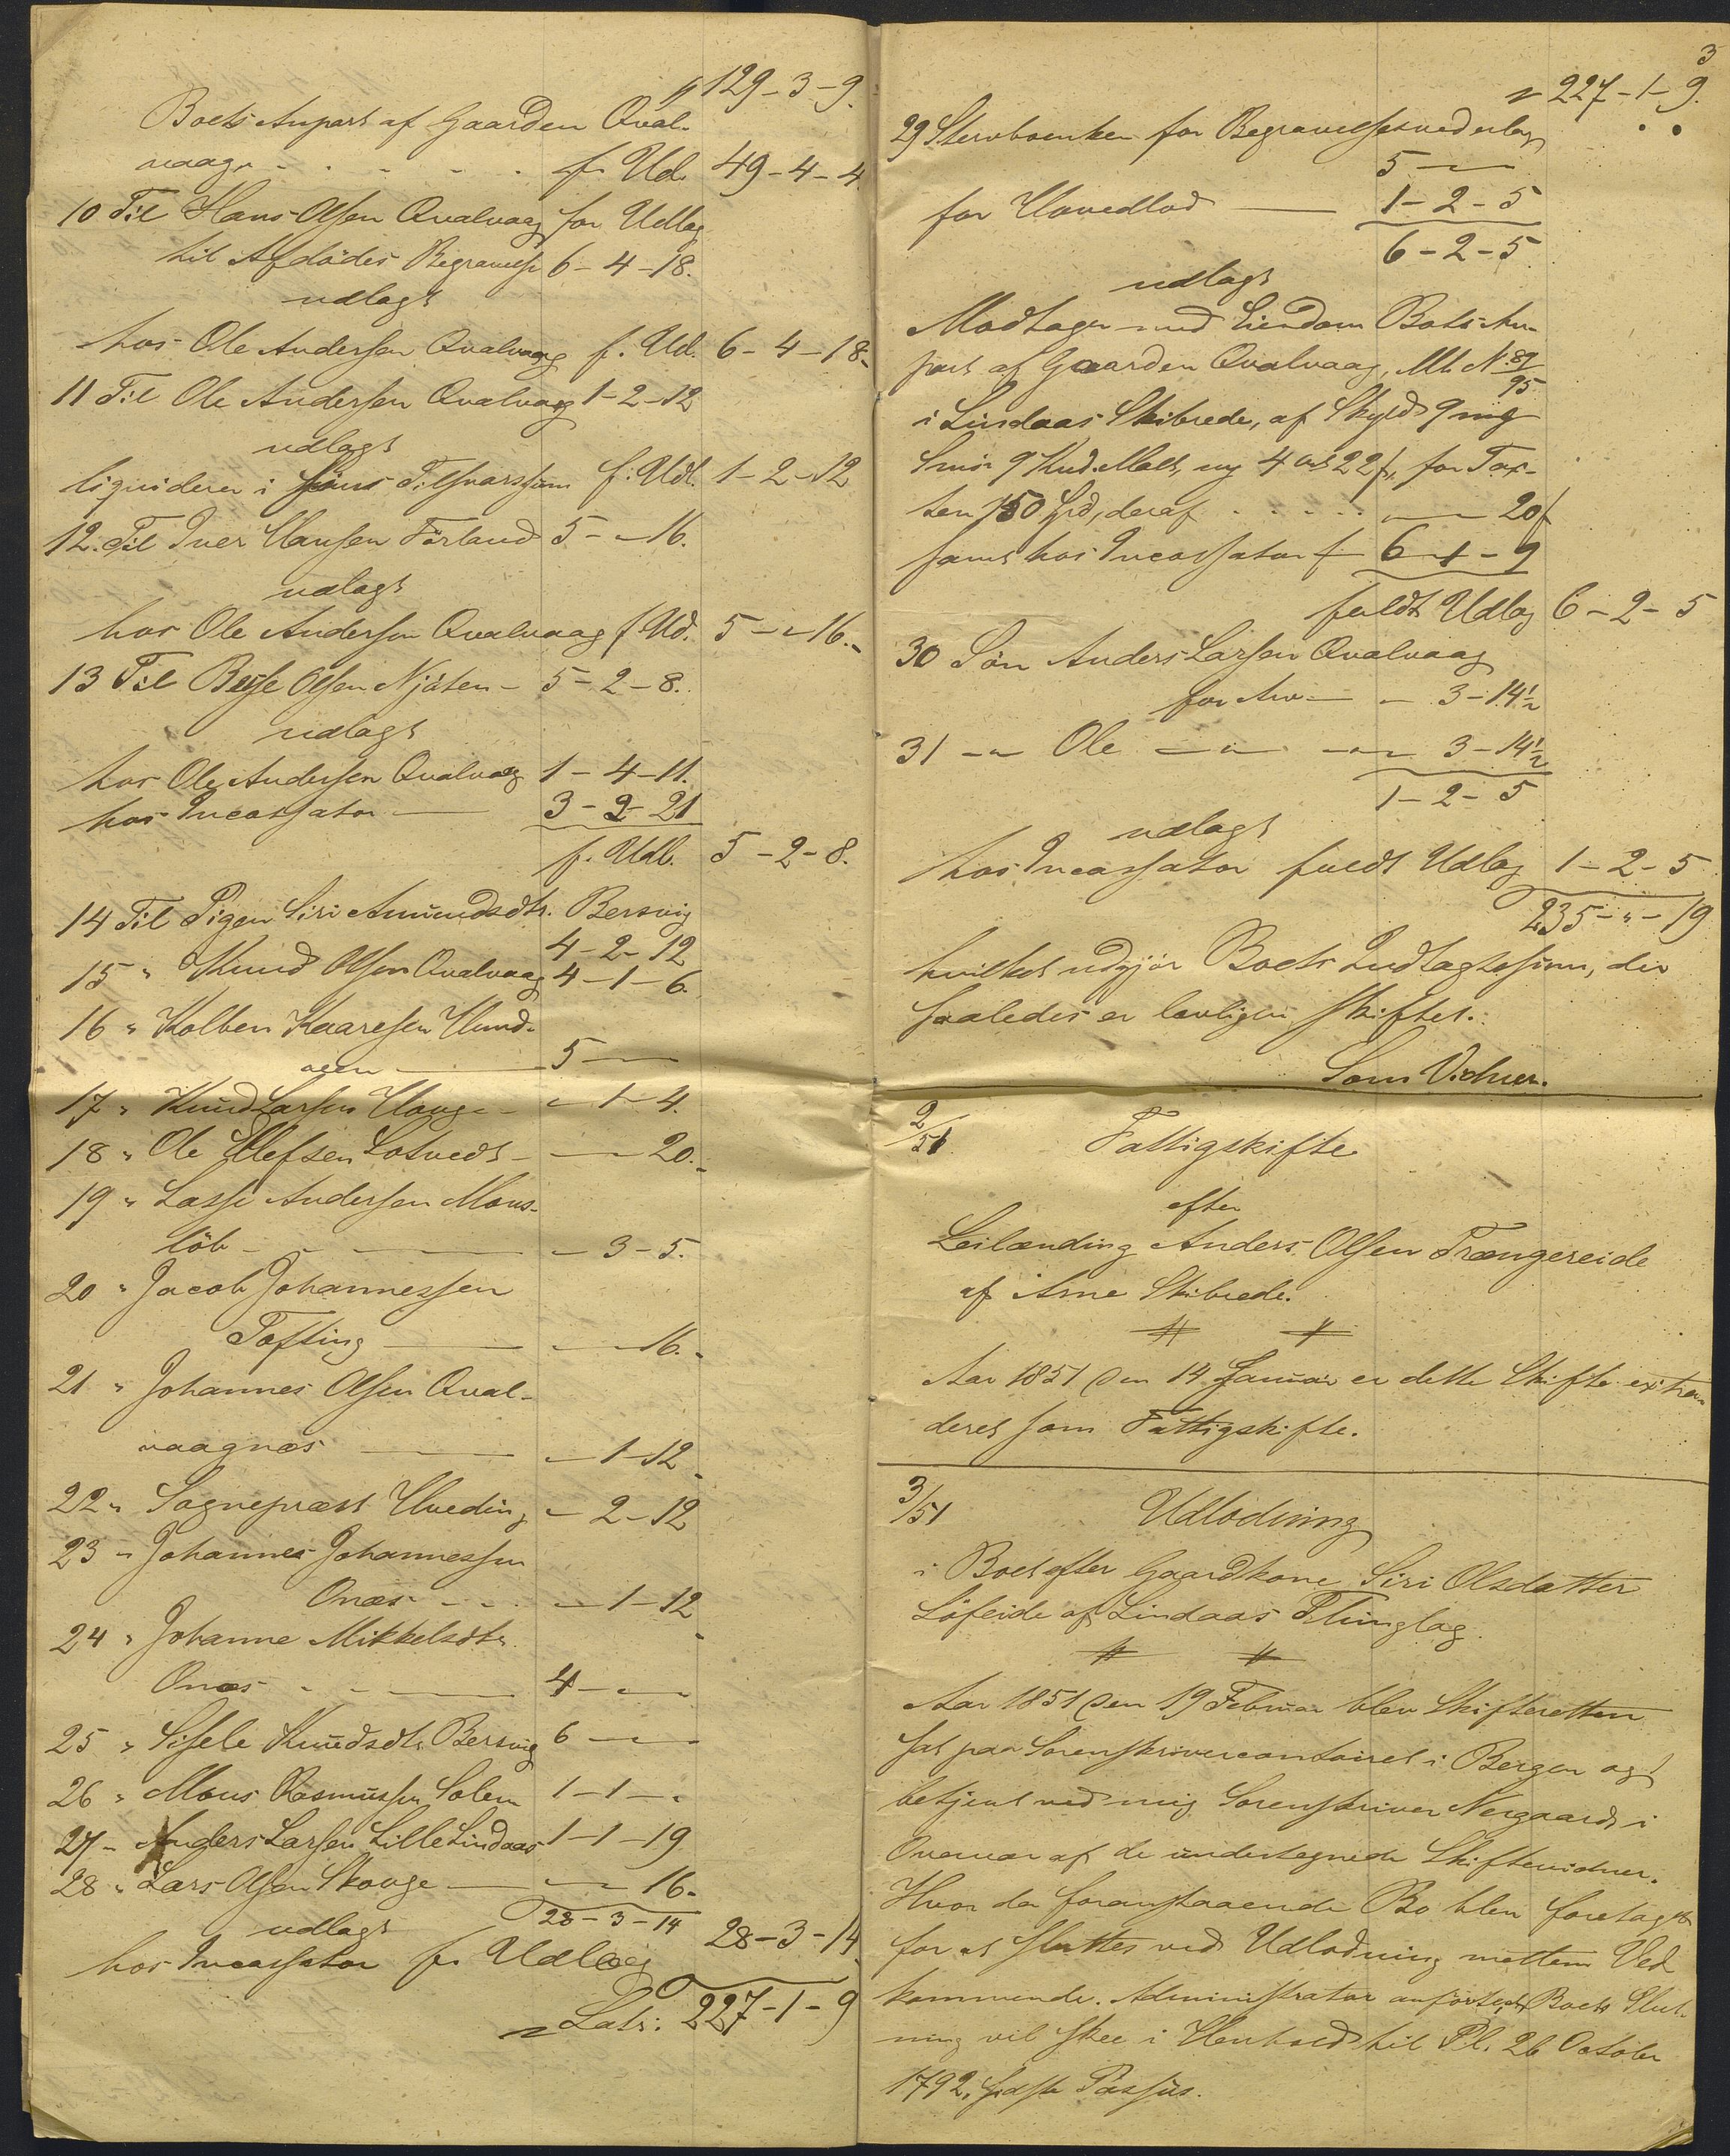 " 129-3-9.
Boets Anpart af Gaarden Qval-
vaag - - - - - - f. Udl. 49-4-4.
10 Til Hans Olsen Qvalvaag for Udlæg
til Afdødes Begravelse 6-4-18.
udlagt
hos Ole Andersen Qvalvaag f. Udl. 6-4-18.
11 Til Ole Andersen Qvalvaag 1-2-12
udlagt
liqviderer i hans Tilsvarssum f. Udl. 1-2-12
12. Til Iver Hansen Førland 5-"-16.
udlagt
hos Ole Andersen Qvalvaag f. Udl. 5-"-16.
13 Til Olsen Njåten - 5-2-8.
udlagt
hos Ole Andersen Qvalvaag 1-4-11.
hos Incassator — 3-2-21
f. Udl. 5-2-8.
14 Til Pigen Siri Amundsdtr. Bersvig
4-2-12
15 " Knud Olsen Qvalvaag 4-1-6.
16 " Kolben Kaaresen Hund-
5-"-"
17 " Knud Larsen Hauge - "-1-4.
18 " Ole Ellefsen Lotvedt - "-"-20.
19 " Lasse Andersen Mons-
löb - - — "-3-5.
20 " Jacob Johannessen
Tofting — "-"-16.
21 " Johannes Olsen Qval-
vaagnæs — "-1-12
22 " Sognepræst Hveding "-2-12
23 " Johannes Johannessen
Onæs - - - "-1-12
24 " Johanne Mikkelsdtr.
Onæs - - — 4-"-"
25 " Sisele Knudsdtr. Bersvig 6-"-"
26 " Mons Rasmussen Solem 1-1-"
27 " Anders Larsen Lille Lindaas 1-1-19
28 " Lars Olsen Skauge — "-"-16.
28-3-14
udlagt
hos Incassator f. Udlæg 28-3-14
Lats. 227-1-9
3
" 227-1-9.
29 Stervboenken for Begravelsesvederlag
5-"-"
for Hovedlod — 1-2-5
6-2-5
udlagt
Modtager med Eiendom Boets An-
part af Gaarden Qvalvaag, M. No 89/95
i Lindaas Skibrede, af Skyld 9 mrg
Smør 9 Kud. Malt, ny 4 ort 22 s, for Tax-
ten 150 Spd, deraf - - - - - "-"-20 s
samt hos Incassator f 6-1-9
fuldt Udlæg 6-2-5
30 Søn Anders Larsen Qvalvaag
for Arv — "-3-14½
31 -"- Ole -"- -"- 3-14½
1-2-5
udlagt
hos Incassator fuldt Udlæg 1-2-5
235-"-19
hvilket udgjør Boets Indtægtssum, der
saaledes er lovligen skiftet.
Som Vidner.
2/51 Fattigskifte
efter
Leilænding Anders Olsen Trængereide
af Arne Skibrede.
Aar 1851 den 14 Januar er dette Skifte extra-
deret som Fattigskifte.
3/51 Udlodning
i Boet efter Gaardkone Siri Olsdatter
Löfeide af Lindaas Thinglag.
Aar 1851 den 19 Februar blev Skifteretten
sat paa Sorenskrivercontoiret i Bergen og
betjent ved mig Sorenskriver Nergaard i
Overvær af de undertegnede Skiftevidner.
Hvor da foranstaaende Bo blev foretaget
for at sluttes ved Udlodning mellem Ved
kommende. Administrator anførte, at Boets Slut-
ning vil skee i Henhold til Pl. 26 October
1792, sidste Passus.